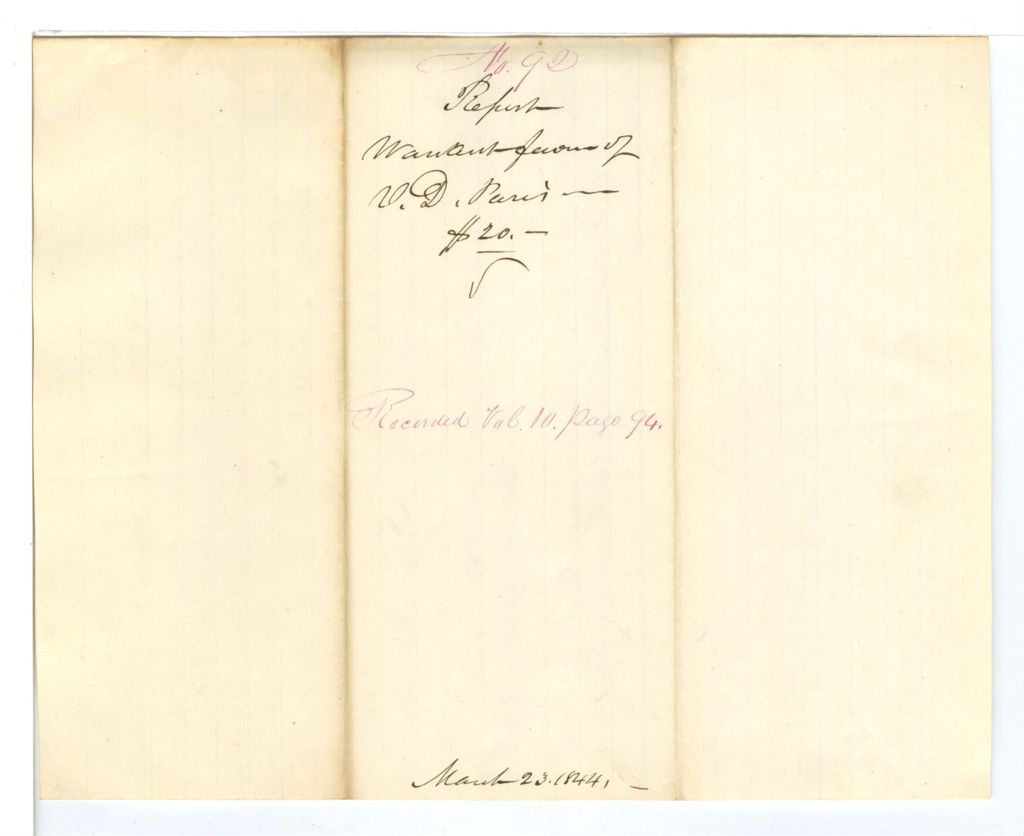 No. 92
Report
Warrant favor of
V. D. Paris —
$20.—
Recorded Vol. 10. Page 94.
March 23. 1844. —